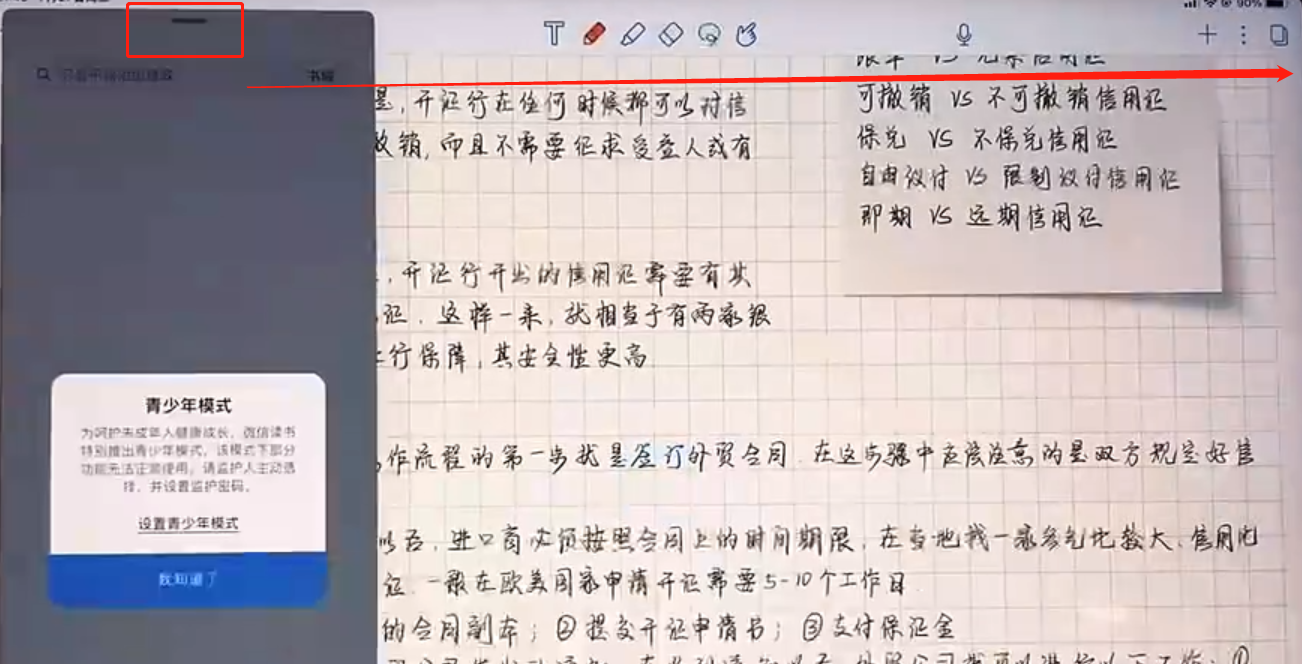 90%
T
书城
是,开证行在任何时候都可以对信
撤销,而且不需要征求受益人或有
可撤销 VS 不可撤销信用证
保兑 VS 不保兑信用证
自由议付 VS 限制议付信用证
即期 VS 远期信用证
,开证行开出的信用证需要有其
证.这样一来,就相当于有两家银
行保障,其安全性更高
青少年模式
为呵护未成年人健康成长,微信读书
特别推出青少年模式,该模式下部分
功能无法正常使用,请监护人主动选
择,并设置监护密码。
设置青少年模式
我知道了
作流程的第一步就是签订外贸合同.在这步骤中应该注意的是双方规定好信
以后,进口商必须按照合同上的时间期限,在当地找一家名气比较大、信用
证.一般在欧美国家申请开证需要5-10个工作日
的合同副本;②提交开证申请书;③支付保证金